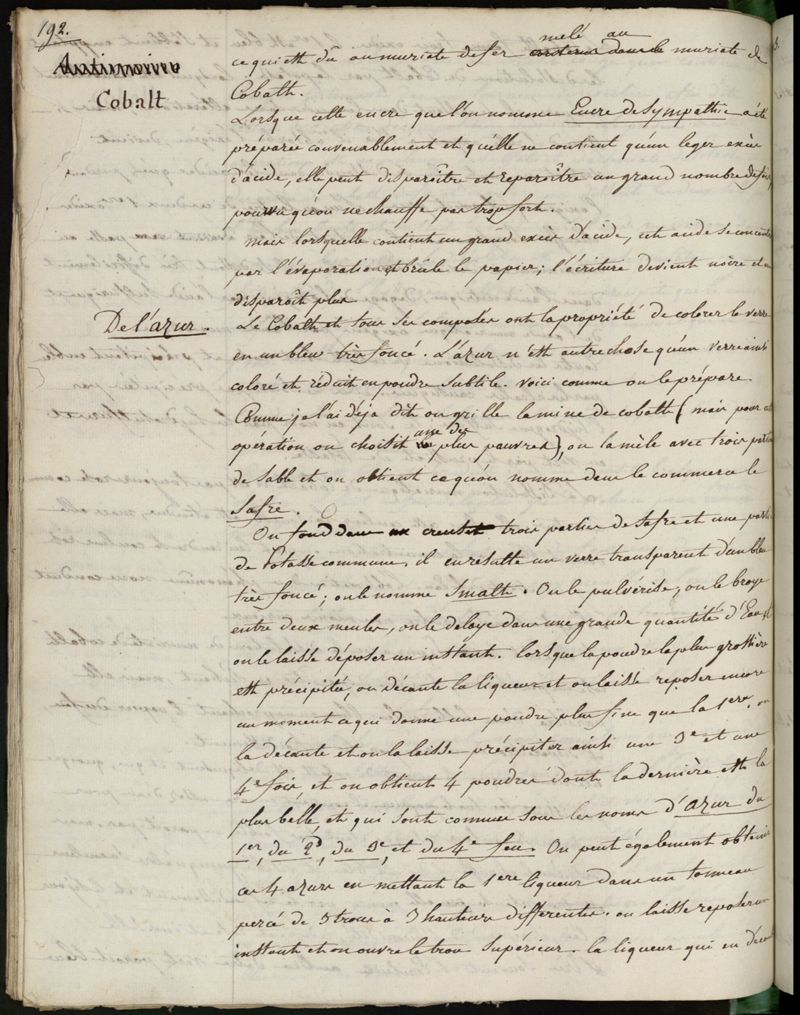 192.
Antimoine
Cobalt
melé au
ce qui est du au muriate de fer contenu dans le muriate de
Cobalt.
Lorsque cette encre que l'on nomme Encre de Sympathie a été
préparée convenablement et qu'elle ne contient qu'un leger excès
d'acide, elle peut disparoître et reparoître un grand nombre de fois,
pourvu qu'on ne chauffe pas trop fort.
Mais lorsqu'elle contient un grand excès d'acide, cet acide se concentre
par l'évaporation et brûle le papier; l'écriture devient noire et ne
disparoît plus
De l'azur.
Le Cobalt et tous ses composés ont la propriété de colorer le verre
en un bleu très foncé. L'azur n'est autre chose qu'un verre ainsi
coloré et réduit en poudre subtile. voici comme on le prépare.
Comme je l'ai déja dit on grille la mine de cobalt (mais pour cet
une des
opération on choisit plus pauvres), on la mêle avec trois parties
de Sable et on obtient ce qu'on nomme dans le commerce le
Safre.
On fond dans un creuset trois parties de Safre et une partie
de Potasse commune, il en resulte un verre transparent d'un bleu
très foncé; on le nomme Smalt. On le pulvérise, on le broye
entre deux meules, on le delaye dans une grande quantité d'Eau, et
on le laisse déposer un instant. lorsque la poudre la plus grossière
est précipitée, on décante la liqueur et on laisse reposer encore
un moment ce qui donne une poudre plus fine que la 1ere, on
la décante et on la laisse précipiter ainsi une 3e et une
4e fois, et on obtient 4 poudres dont la dernière est la
plus belle et qui sont connues sous les noms d'azur du
1er, du 2d, du 3e, et du 4e feu. On peut également obtenir
ces 4 azurs en mettant la 1ere liqueur dans un tonneau
percé de 3 trous à 3 hauteurs differentes. on laisse reposer un
instant et on ouvre le trou Supérieur. la liqueur qui en